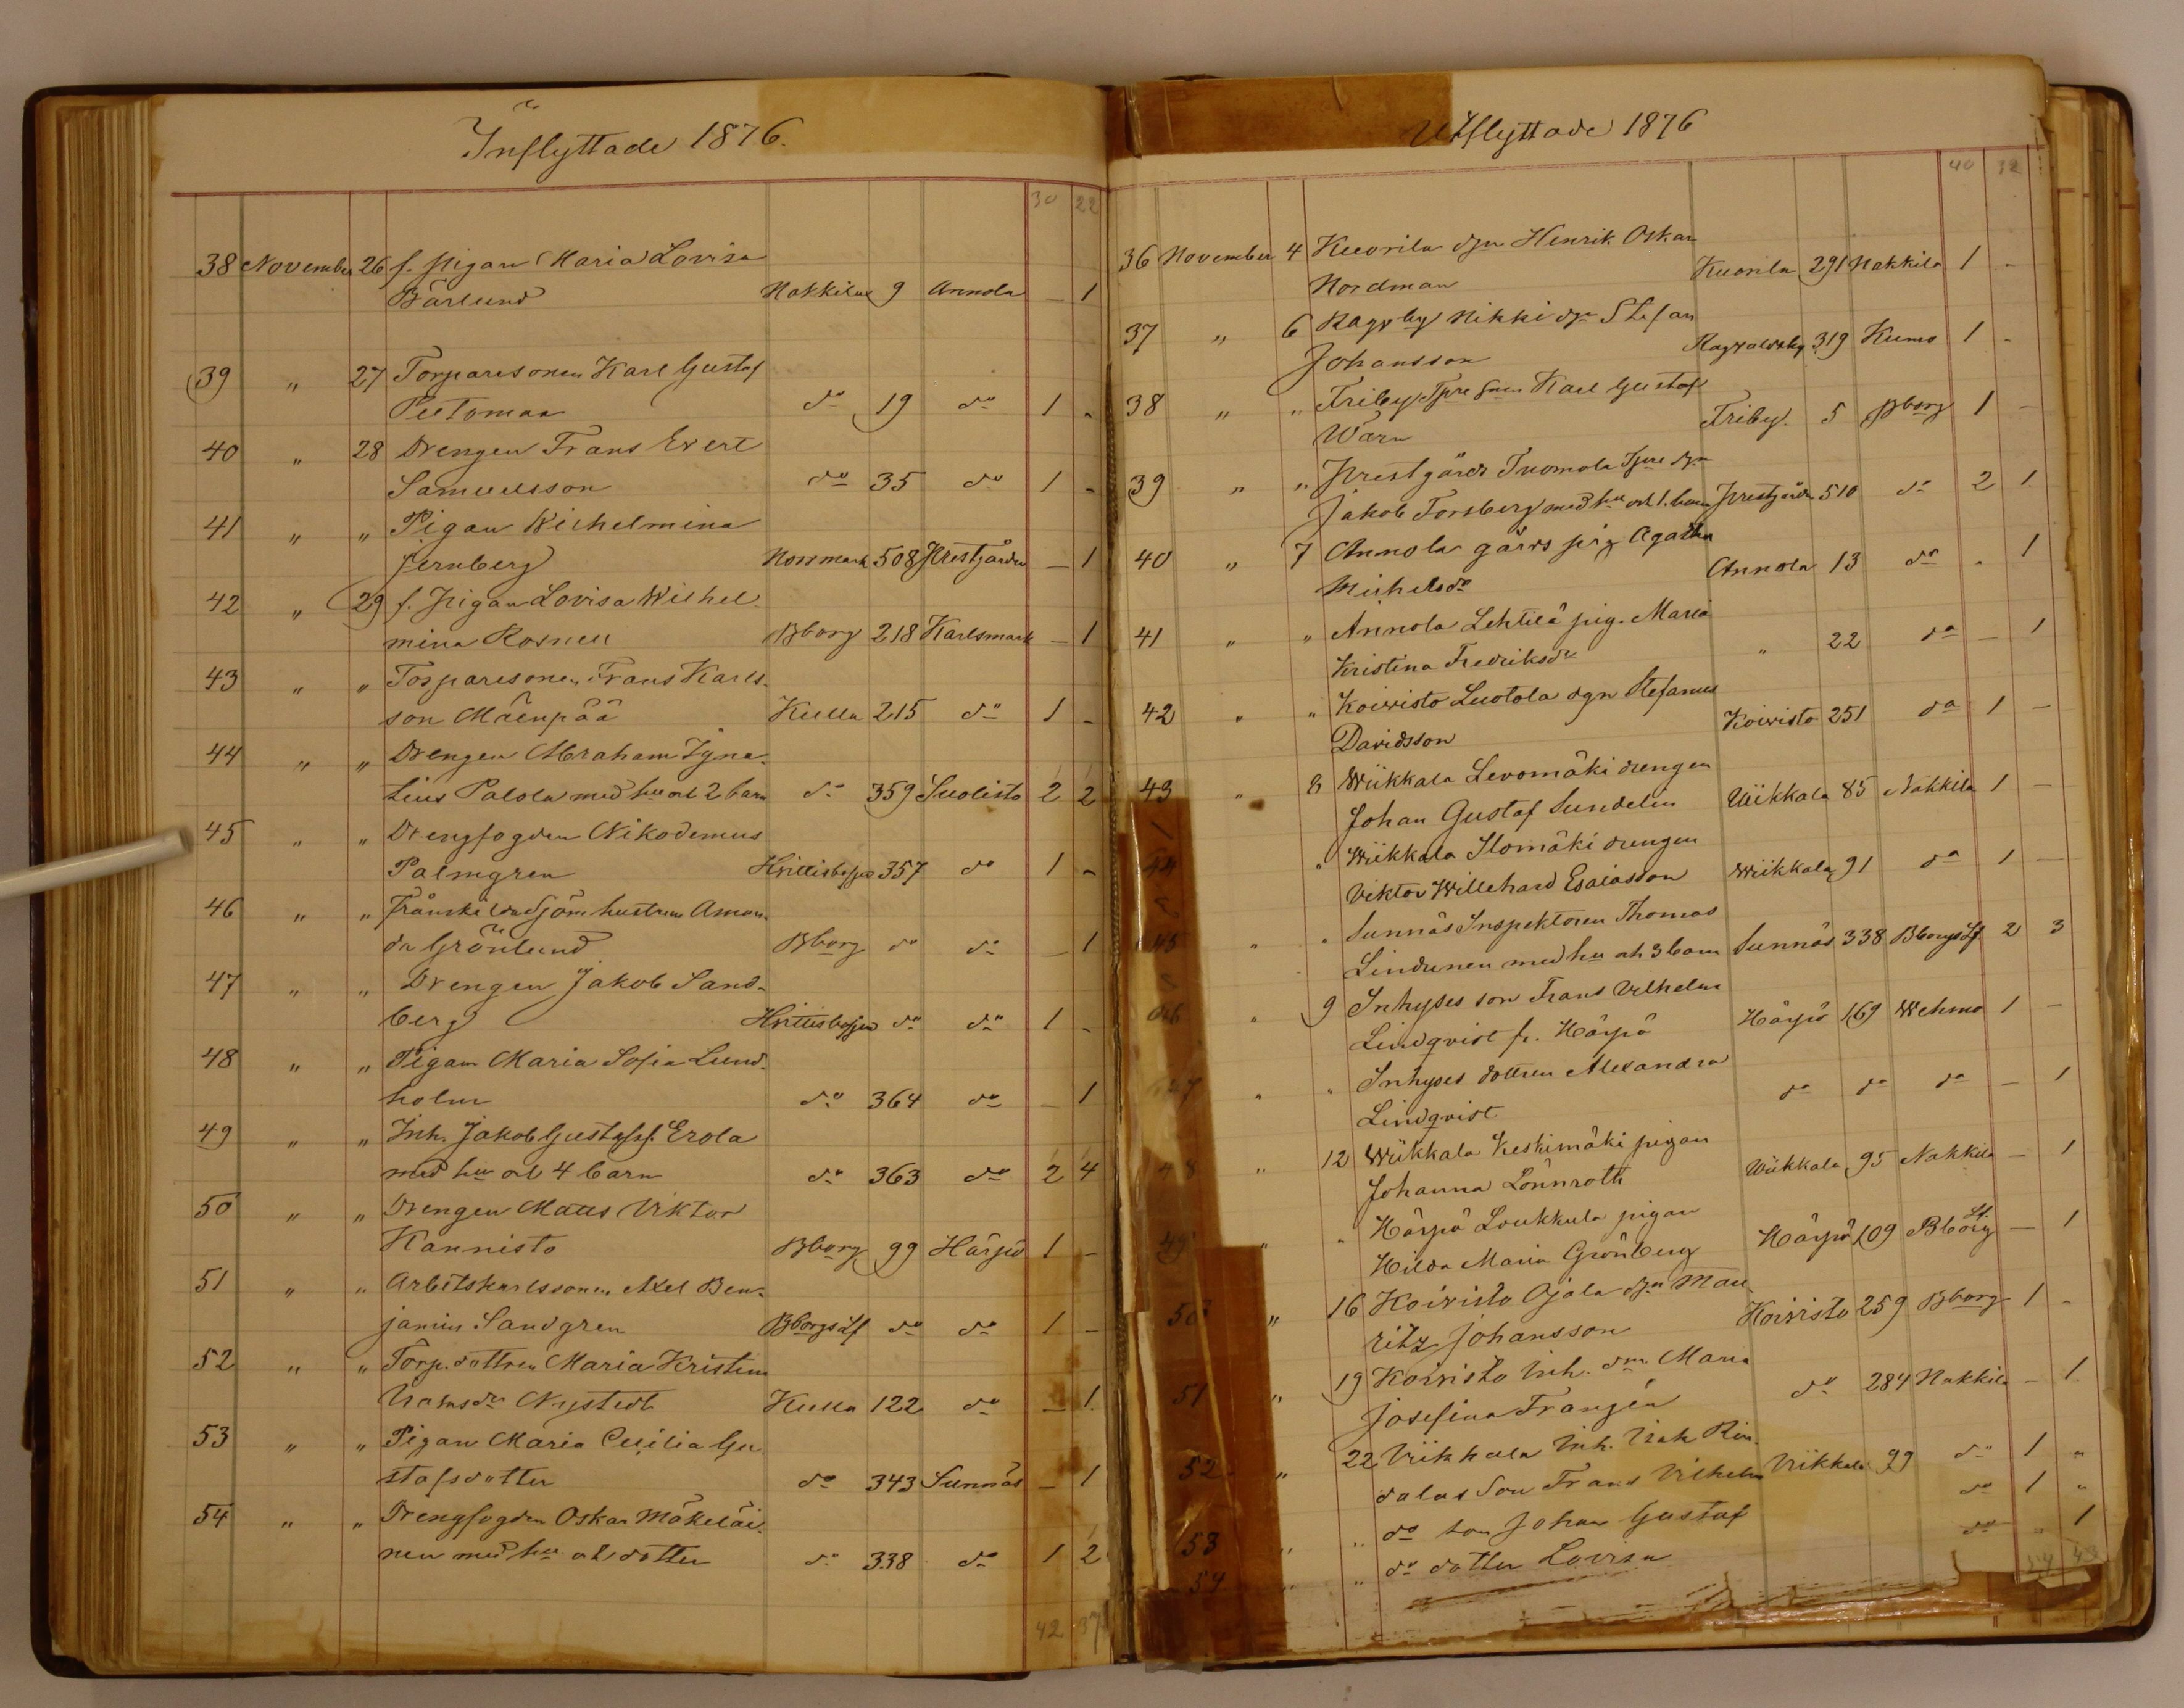 Inflyttade 1876.
30 22
38 November 26 f. pigan Maria Lovisa
Bärlund Nakkila 9 Annola – 1
39 " 27 Torparesonen Karl Gustaf
Peltomaa do 19 do 1 -
40 " 28 Drengen Frans Evert
Samuelsson do 35 do 1 -
41 " " Pigan Wilhelmina
Jernberg Norrmark 508 Prestgården – 1
42 " 29 f. Pigan Lovisa Wilhel
mina Rosnell Bborg 218 Karlsmark – 1
43 " " Torparesonen Frans Karls-
son Mäenpää Kulla 215 do 1 -
44 " " Drengen Abraham Igna-
tius Palola med hu och 2 barn do 359 Suolisto 2 2
45 " " Drengfogden Nikodemus
Palmgren 357 do 1 -
46 " " Frånskilda Sjöm. hustrun Aman-
da Grönlund Bborg do do – 1
47 " " Drengen Jakob Sand-
berg do do 1 -
48 " " Pigan Maria Sofia Lund-
holm do 364 do – 1
49 " " Inh. Jakob Gustafss. Erola
med hu och 4 barn do 363 do 2 4
50 " " Drengen Matts Viktor
Kannisto Bborg 99 Härpö 1 –
51 " " Arbetskarlssonen Axel Ben-
jamin Sandgren Bborgs Lf do do 1 –
52 " " Torp. dottren Maria Kristina
Nystedt Kulla 122 do – 1
53 " " Pigan Maria Cecilia Gu
stafsdotter do 343 Sunnäs – 1
54 " " Drengfogden Oskar Mäkeläi-
nen med hu och dotter do 338 do 1 2
42 37
Utflyttade 1876
40 32
36 November 4 Kuorila dgn Henrik Oskar
Nordman Kuorila 291 Nakkila 1 -
37 " 6 Ragsby Nikki dgn Stefan
Johansson 319 Kumo 1 -
38 " " Friby Tpre Karl Gustaf
Wärn Friby. 5 Bborg 1 –
39 " " Prestgårds Tuomola Tpre dgn
Jakob Forsberg med hu och 1. barn Prestgårds 510 do 2 1
40 " 7 Annola gårds pig Agatha
Michelsdr Annola 13 do - 1
41 " " Annola Lehtilä pig. Maria
Kristina Fredriksdr " 22 do – 1
42 " " Koivisto Luotola dgn Stefanus
Davidsson Koivisto 251 do 1 –
43 " 8 Wiikkala Levomäki drengen
Johan Gustaf Sundelin Wiikkala 85 Nakkila 1 –
44 " Wiikkala Ilomäki drengen
Viktor Willehard Esaiasson Wiikkala 91 do 1 –
45 " " Sunnäs Inspektoren Thomas
Lindunen med hu och 3 barn Sunnäs 338 Bborgs Lf 2 3
46 " 9 Inhyses son Frans Vilhelm
Lindqvist fr. Härpö Härpö 169 Wehmo 1 –
47 " " Inhyses dottren Alexandra
Lindqvist do do do – 1
48 " 12 Wiikkala Keskimäki pigan
Johanna Lönnroth Wiikkala 95 Nakkila – 1
49 " " Härpö Loukkula pigan
Hilda Maria Grönberg Härpö 109 Bborg Lf. – 1
50 " 16 Koivisto Ojala dgn Mau
ritz Johansson Koivisto 259 Bborg 1 -
51 " 19 Koivisto Inh. Maria
Josefina Frangén do 284 Nakkila – 1.
52 " 22 Viikkala Inh. Isak Rin-
dalas Son Frans Vilhelm Viikkala 99 do 1 "
53 " " do son Johan Gustaf do 1 "
54 " " do dotter Lovisa do " 1
54 43